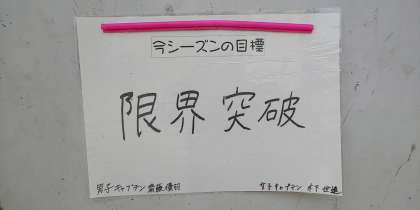 今シーズンの目標
限界突破
男子キャプテン 齋藤
女子キャプテン 木下